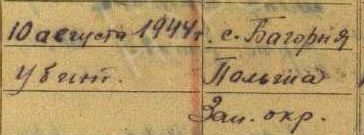 10 августа 1944г. с. Багория
Убит. Польша
Зап. окр.